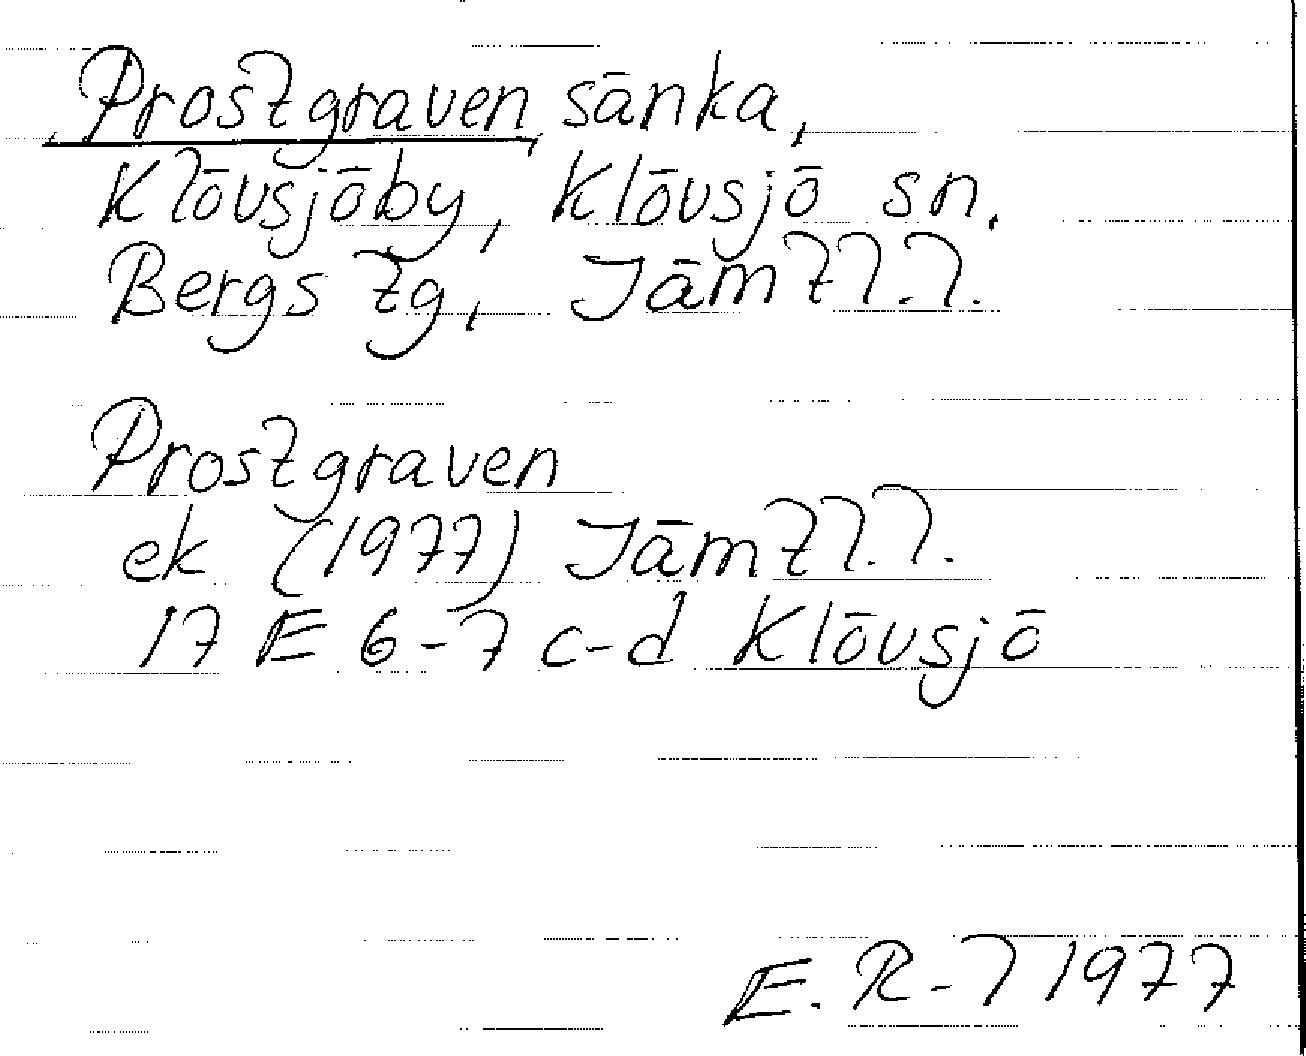 Prostgraven sänka,
Klövsjöby, Klövsjö sn.
Bergs tg, Jämtl.l.
Prostgraven
ek (1977) Jämtl.l.
17 E 6-7 c-d Klövsjö
E. R-l 1977